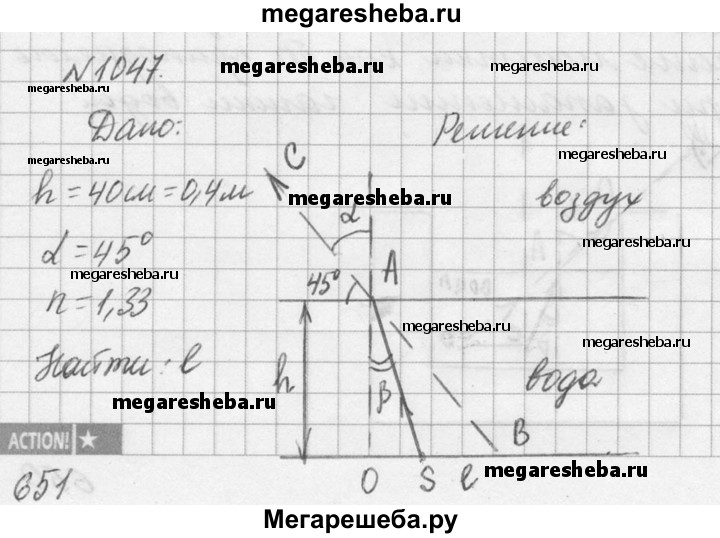 megaresheba.ru
N 1047.
megaresheba.ru
megaresheba.ru
megaresheba.ru
Дано:
Решение:
megaresheba.ru
megaresheba.ru
C
h = 40 см = 0,4 м
megaresheba.ru
воздух
α
α = 45°
megaresheba.ru
megaresheba.ru
45°
A
n = 1,33
megaresheba.ru
megaresheba.ru
Найти: l
h
β
вода
megaresheba.ru
ACTION!
B
651
O S l
megaresheba.ru
Мегарешеба.ру